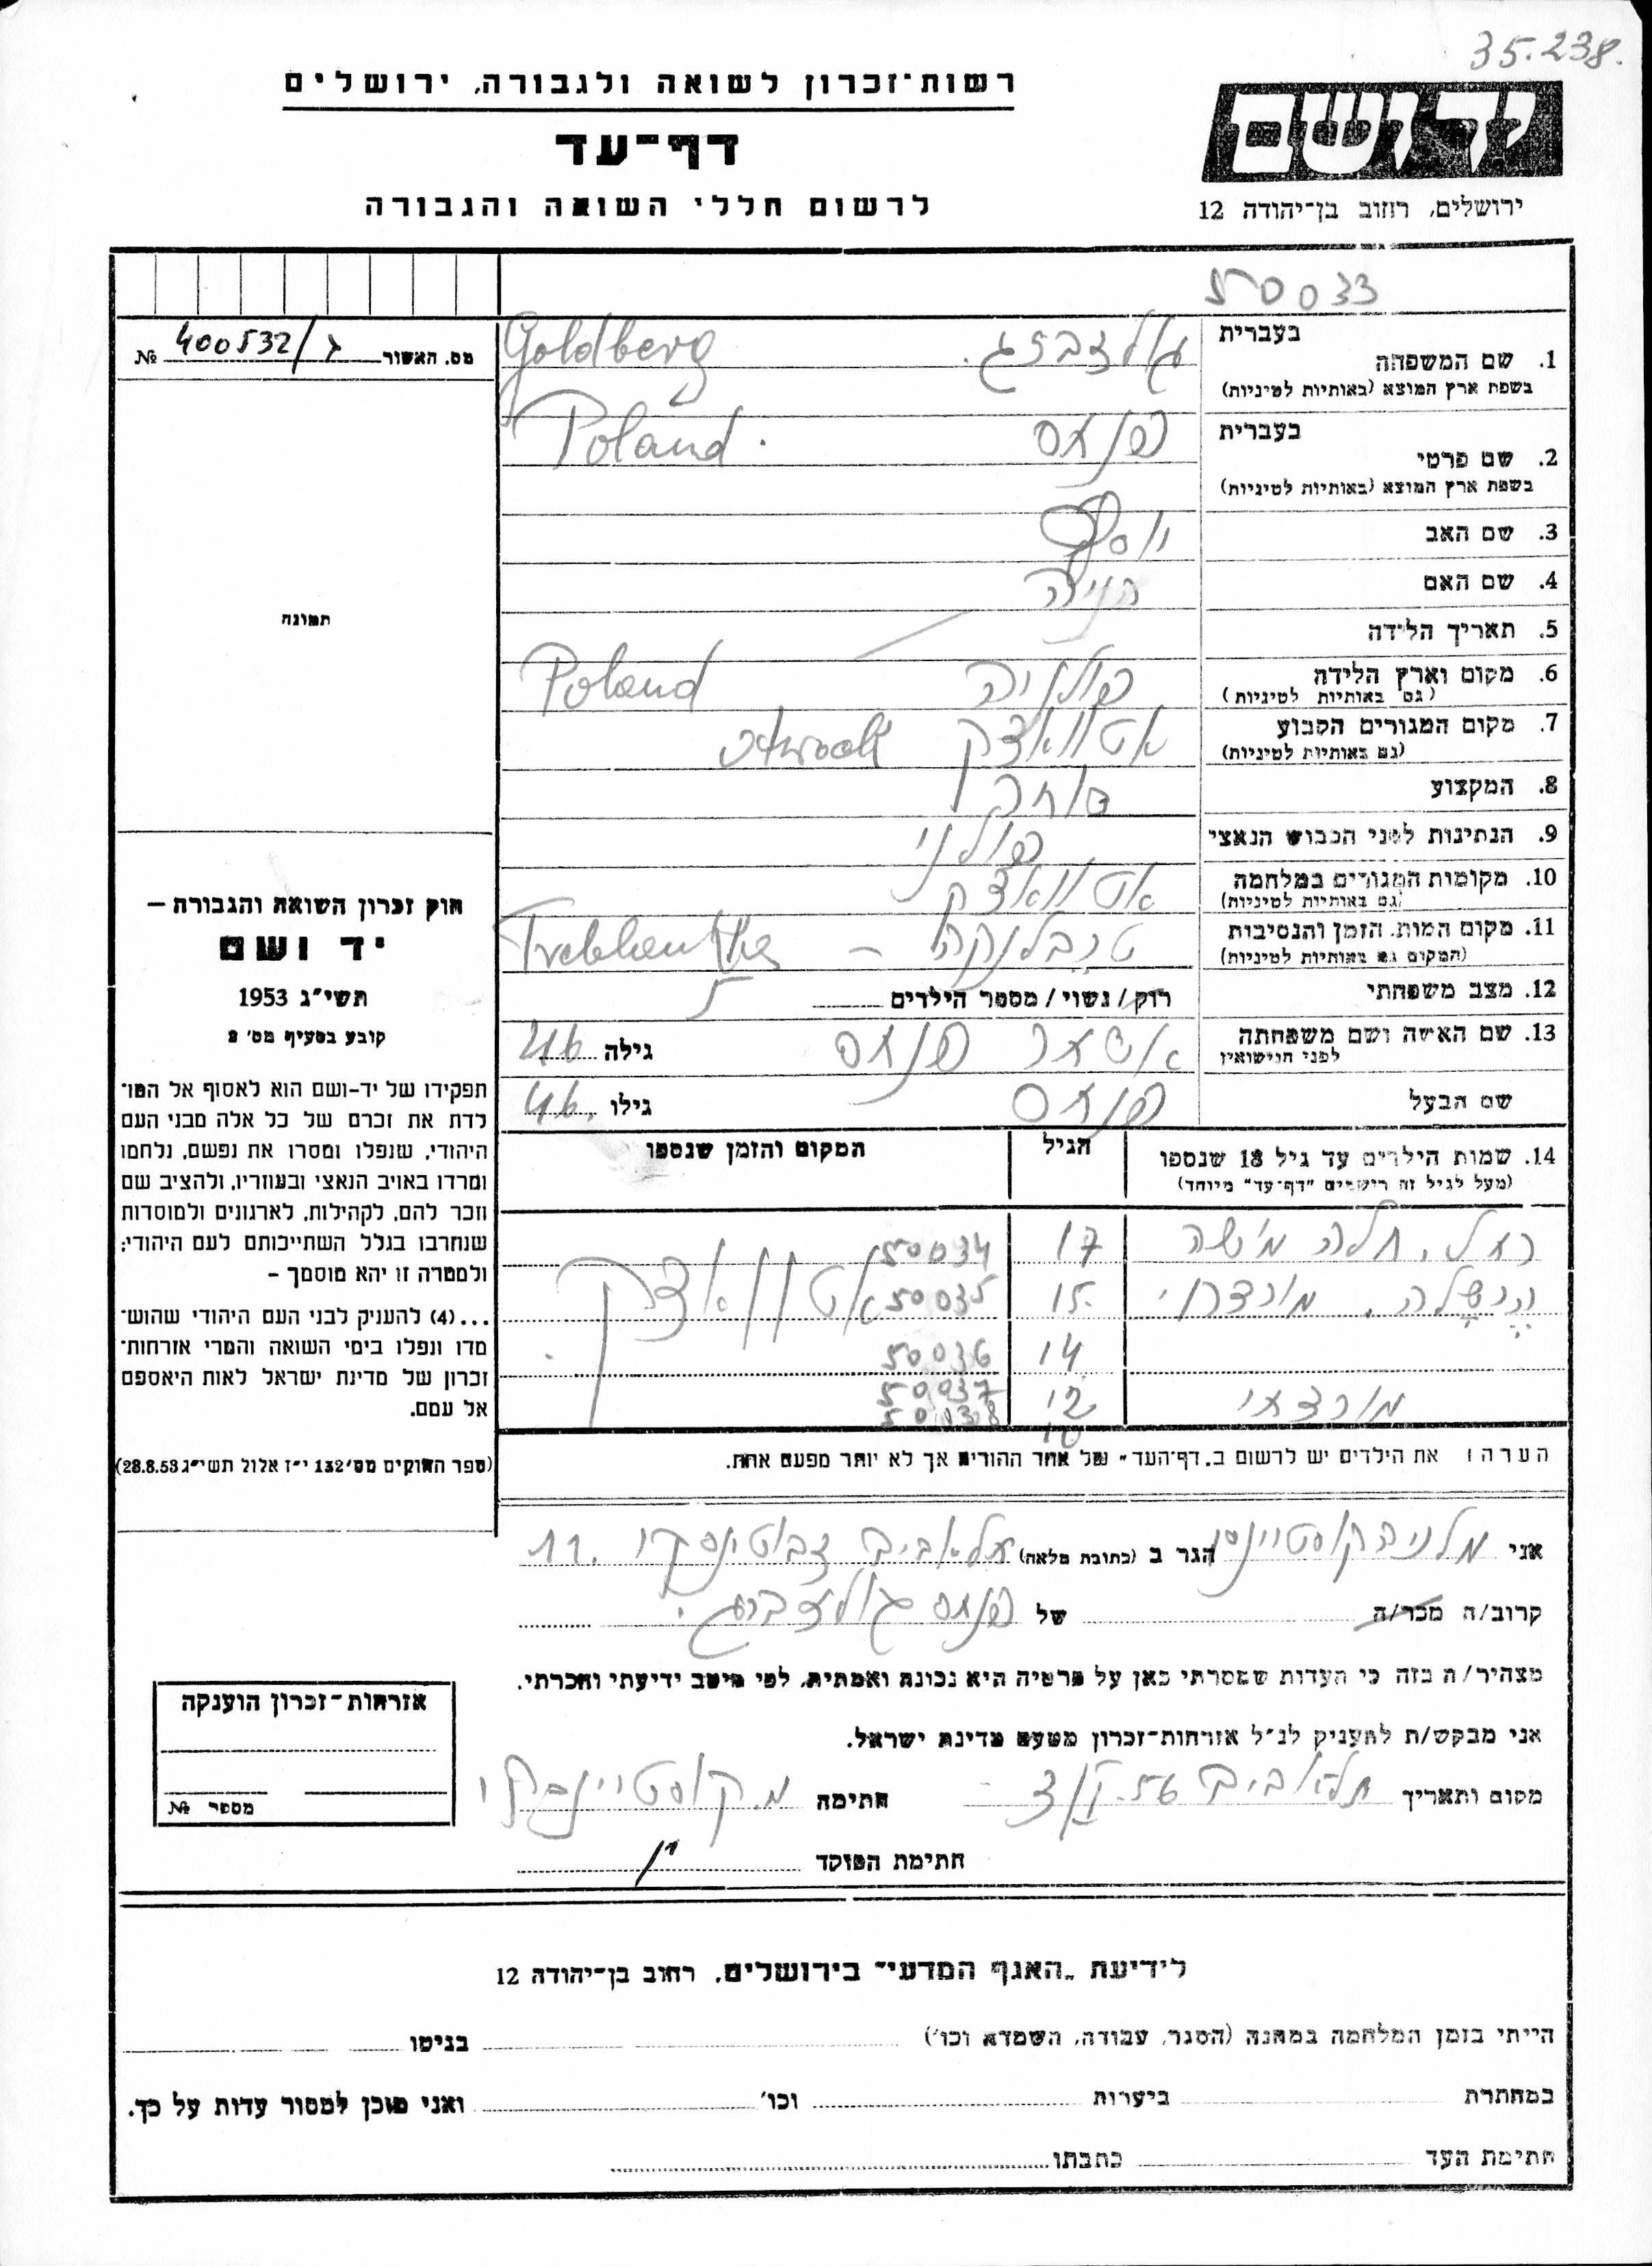 35.238.
רשות־זכרון לשואה ולגבורה, ירושלים
דף־עד
לרשום חללי השואה והגבורה
יד ושם
ירושלים, רחוב בן־יהודה 12
50033
מס. האשור 400532/ג №
תמונה
חוק זכרון השואה והגבורה —
יד ושם
תשי״ג 1953
קובע בסעיף מס׳ 2
תפקידו של יד-ושם הוא לאסוף אל המו־
לדת את זכרם של כל אלה מבני העם
היהודי, שנפלו ומסרו את נפשם, נלחמו
ומרדו באויב הנאצי ובעוזריו, ולהציב שם
וזכר להם, לקהילות, לארגונים ולמוסדות
שנחרבו בגלל השתייכותם לעם היהודי;
ולמטרה זו יהא מוסמך —
...(4) להעניק לבני העם היהודי שהוש־
מדו ונפלו בימי השואה והמרי אזרחות־
זכרון של מדינת ישראל לאות היאספם
אל עמם.
(ספר החוקים מס׳ 132 י״ז אלול תשי״ג 28.8.53)
בעברית
1. שם המשפחה גולדברג. Goldberg
בשפת ארץ המוצא (באותיות לטיניות)
בעברית
2. שם פרטי פנחס Poland.
בשפת ארץ המוצא (באותיות לטיניות)
3. שם האב יוסף
4. שם האם
5. תאריך הלידה
6. מקום וארץ הלידה פולניה Poland
(גם באותיות לטיניות)
7. מקום המגורים הקבוע אטוואצק otwock
(גם באותיות לטיניות)
8. המקצוע סוחר
9. הנתינות לפני הכבוש הנאצי פולני
10. מקומות המגורים במלחמה אטוואצק
(גם באותיות לטיניות)
11. מקום המות, הזמן והנסיבות טרבלנקה —
(המקום גם באותיות לטיניות)
12. מצב משפחתי רווק/נשוי/מספר הילדים 5
13. שם האשה ושם משפחתה אסתר פנחס גילה 46
לפני הנישואין
שם הבעל פנחס גילו 46.
14. שמות הילדים עד גיל 18 שנספו הגיל המקום והזמן שנספו
(מעל לגיל זה רישמים "דף־עד" מיוחד)
רחל, חלה מישה 17 50034
15. 50035 אטוואצק
14 50036
12 50037
10 50038
הערה: את הילדים יש לרשום ב„דף־העד״ של אחד ההורים אך לא יותר מפעם אחת.
אני הגר ב (כתובת מלאה) תל אביב ז׳בוטינסקי 11.
קרוב/ה מכר/ה של פנחס גולדברג.
מצהיר/ה בזה כי העדות שמסרתי כאן על פרטיה היא נכונה ואמתית, לפי מיטב ידיעתי והכרתי.
אני מבקש/ת להעניק לנ״ל אזרחות־זכרון מטעם מדינת ישראל.
מקום ותאריך תל אביב חתימה
חתימת הפוקד
אזרחות־זכרון הוענקה
מספר №
לידיעת „האגף המדעי״ בירושלים, רחוב בן־יהודה 12
הייתי בזמן המלחמה במחנה (הסגר, עבודה, השמדא וכו׳) בגיטו
במחתרת ביערות וכו׳ ואני מוכן למסור עדות על כך.
חתימת העד כתבתו